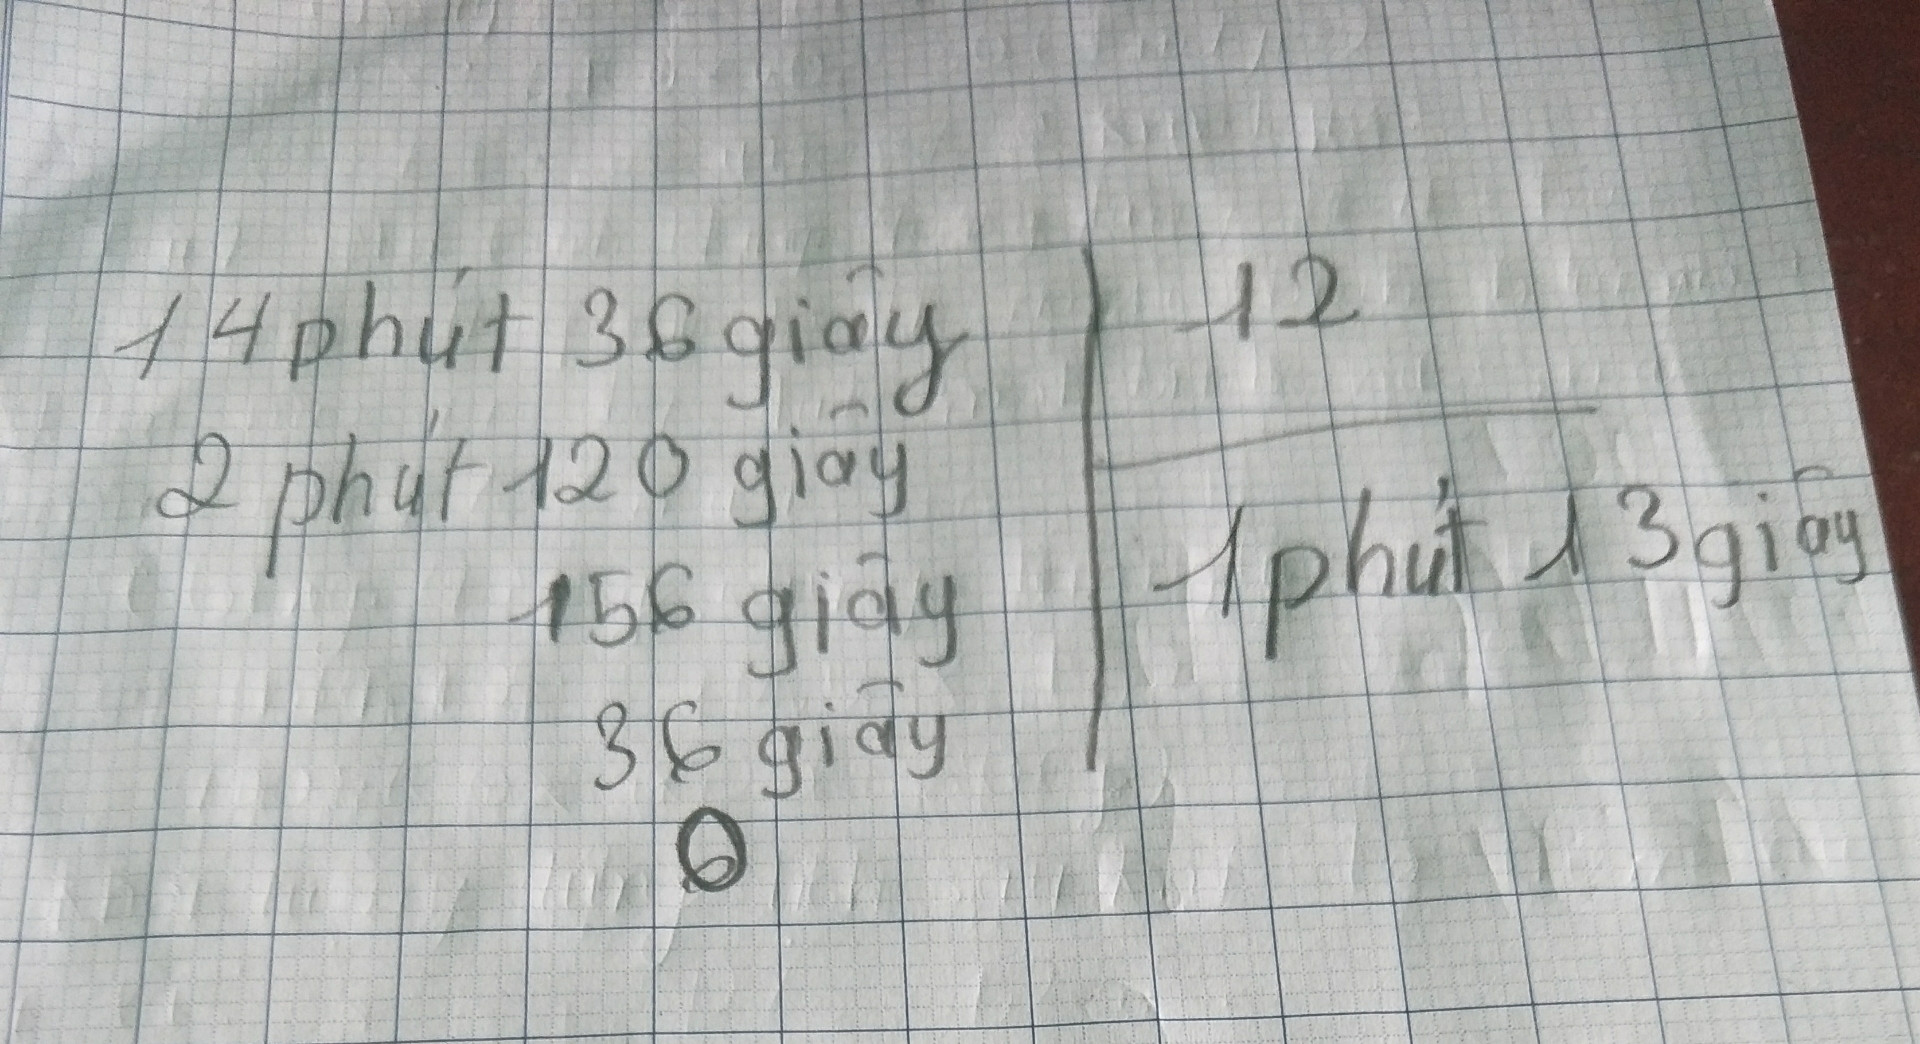 14 phút 36 giây | 12
2 phút 120 giây
1 phút 13 giây
156 giây
36 giây
0